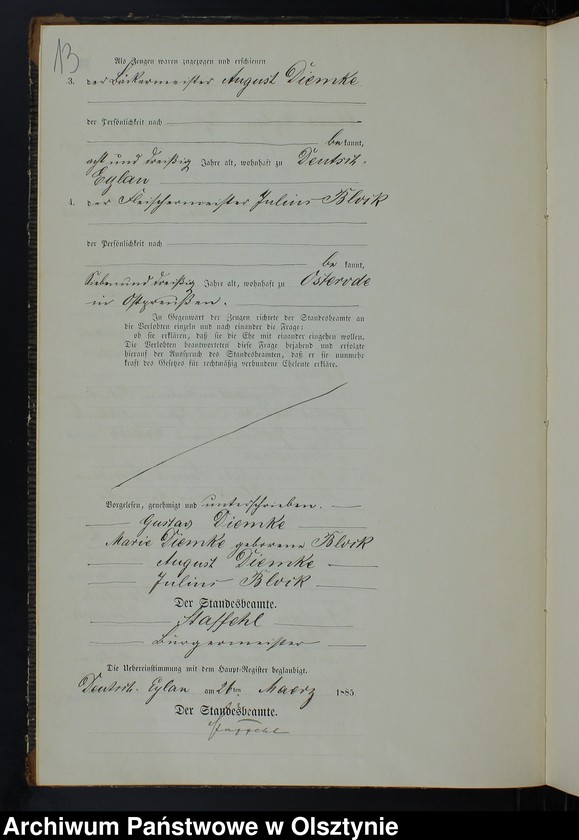 13
Als Zeugen waren zugezogen und erschienen
3. der Bäckermeister August Diemke
der Persönlichkeit nach
be kannt,
acht und dreißig Jahre alt, wohnhaft zu Deutsch-
Eylau
4. der Fleischermeister Julius
der Persönlichkeit nach
be kannt,
Sieben und dreißig Jahre alt, wohnhaft zu Osterode
in Ostpreußen.
In Gegenwart der Zeugen richtete der Standesbeamte an
die Verlobten einzeln und nach einander die Frage:
ob sie erklären, daß sie die Ehe mit einander eingehen wollen.
Die Verlobten beantworteten diese Frage bejahend und erfolgte
hierauf der Ausspruch des Standesbeamten, daß er sie nunmehr
kraft des Gesetzes für rechtmäßig verbundene Eheleute erkläre.
Vorgelesen, genehmigt und unterschrieben.
Gustav Diemke
Marie Diemke geborene
August Diemke
Julius
Der Standesbeamte.
Staffehl
Bürgermeister
Die Uebereinstimmung mit dem Haupt-Register beglaubigt.
Deutsch-Eylau am 26ten Maerz 1885.
Der Standesbeamte.
Staffehl
Archiwum Państwowe w Olsztynie